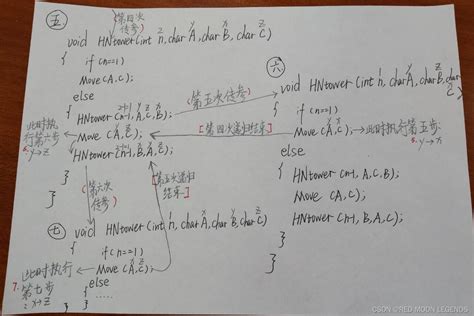 五
第四次
传参
void HNtower(int n, char A, char B, char C)
2 y x z
{ if (n==1)
Move(A,C);
else
{ HNtower(n-1,A,C,B);
Move(A,C);
HNtower(n-1,B,A,C);
}
}
此时执
行第六步
6. y→z
第五次传参
[第四次递归结束]
第六次
传参
第五次递归
结束
六
void HNtower(int n, char A, char B, char C)
{ if (n==1)
Move(A,C); →此时执行第五步
5. y→x
else
{
HNtower(n-1,A,C,B);
Move(A,C);
HNtower(n-1,B,A,C);
}
}
七
void HNtower(int n, char A, char B, char C)
{ if (n==1)
Move(A,C);
else
{ ......
}
此时执行
第七步
7. x→z
CSDN @RED MOON LEGENDS